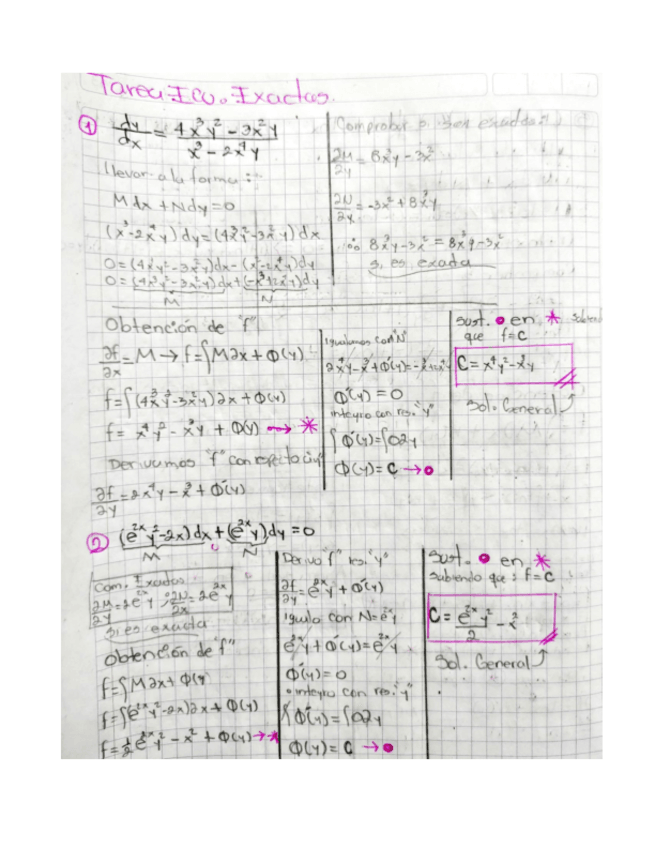 Tarea Ecu. Exactas.
① dy/dx = (4x³y² - 3x²y)/(x³ - 2x⁴y)
Llevar a la forma:
Mdx + Ndy = 0
(x³-2x⁴y)dy = (4x³y²-3x²y)dx
0 = (4x³y²-3x²y)dx - (x³-2x⁴y)dy
0 = (4x³y²-3x²y)dx + (-x³+2x⁴y)dy
M N
Comprobar si son exactas
∂M/∂y = 8x³y - 3x²
∂N/∂y = -3x² + 8x³y
∴ 8x³y-3x² = 8x³y-3x²
si es exacta
Obtención de "f"
∂f/∂x = M → f=∫M∂x + Φ(y)
f=∫(4x³y²-3x²y)∂x + Φ(y)
f= x⁴y² - x³y + Φ(y) → *
Derivamos "f" con respecto a "y"
∂f/∂y = 2x⁴y - x³ + Φ'(y)
Igualamos con "N"
2x⁴y-x³+Φ'(y)=-x³+2x⁴y
Φ'(y) = 0
integro con res. "y"
∫Φ'(y)=∫0∂y
Φ(y) = C → •
sust. • en *
que f=C
C = x⁴y²-x³y
Sol. General
② (e²ˣy²-2x)dx + (e²ˣy)dy = 0
M N
Com. Exactas
∂M/∂y = 2e²ˣy ; ∂N/∂x = 2e²ˣy
si es exacta
Obtención de "f"
f=∫M∂x + Φ(y)
f=∫(e²ˣy²-2x)∂x + Φ(y)
f=½e²ˣy² - x² + Φ(y) → *
Derivo "f" res. "y"
∂f/∂y = e²ˣy + Φ'(y)
Igualo con N=e²ˣy
e²ˣy + Φ'(y) = e²ˣy
Φ'(y) = 0
• integro con res. "y"
∫Φ'(y) = ∫0∂y
Φ(y) = C → •
Sust. • en *
Sabiendo que: f=C
C = e²ˣy²/2 - x²
Sol. General